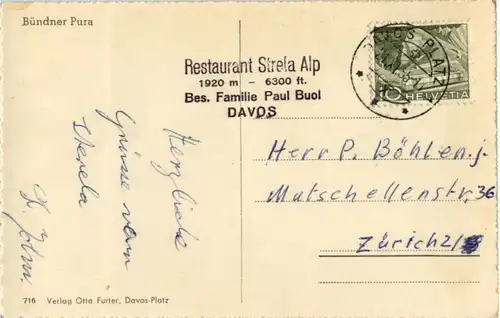 Bündner Pura
Restaurant Strela Alp
1920 m – 6300 ft.
Bes. Familie Paul Buol
DAVOS
DAVOS PLATZ
10 HELVETIA
Herzliche
Grüsse vom
Strela
Herr P. Böhlen. j.
Mutschellenstr. 36
Zürich 2/
716 Verlag Otto Furter, Davos-Platz